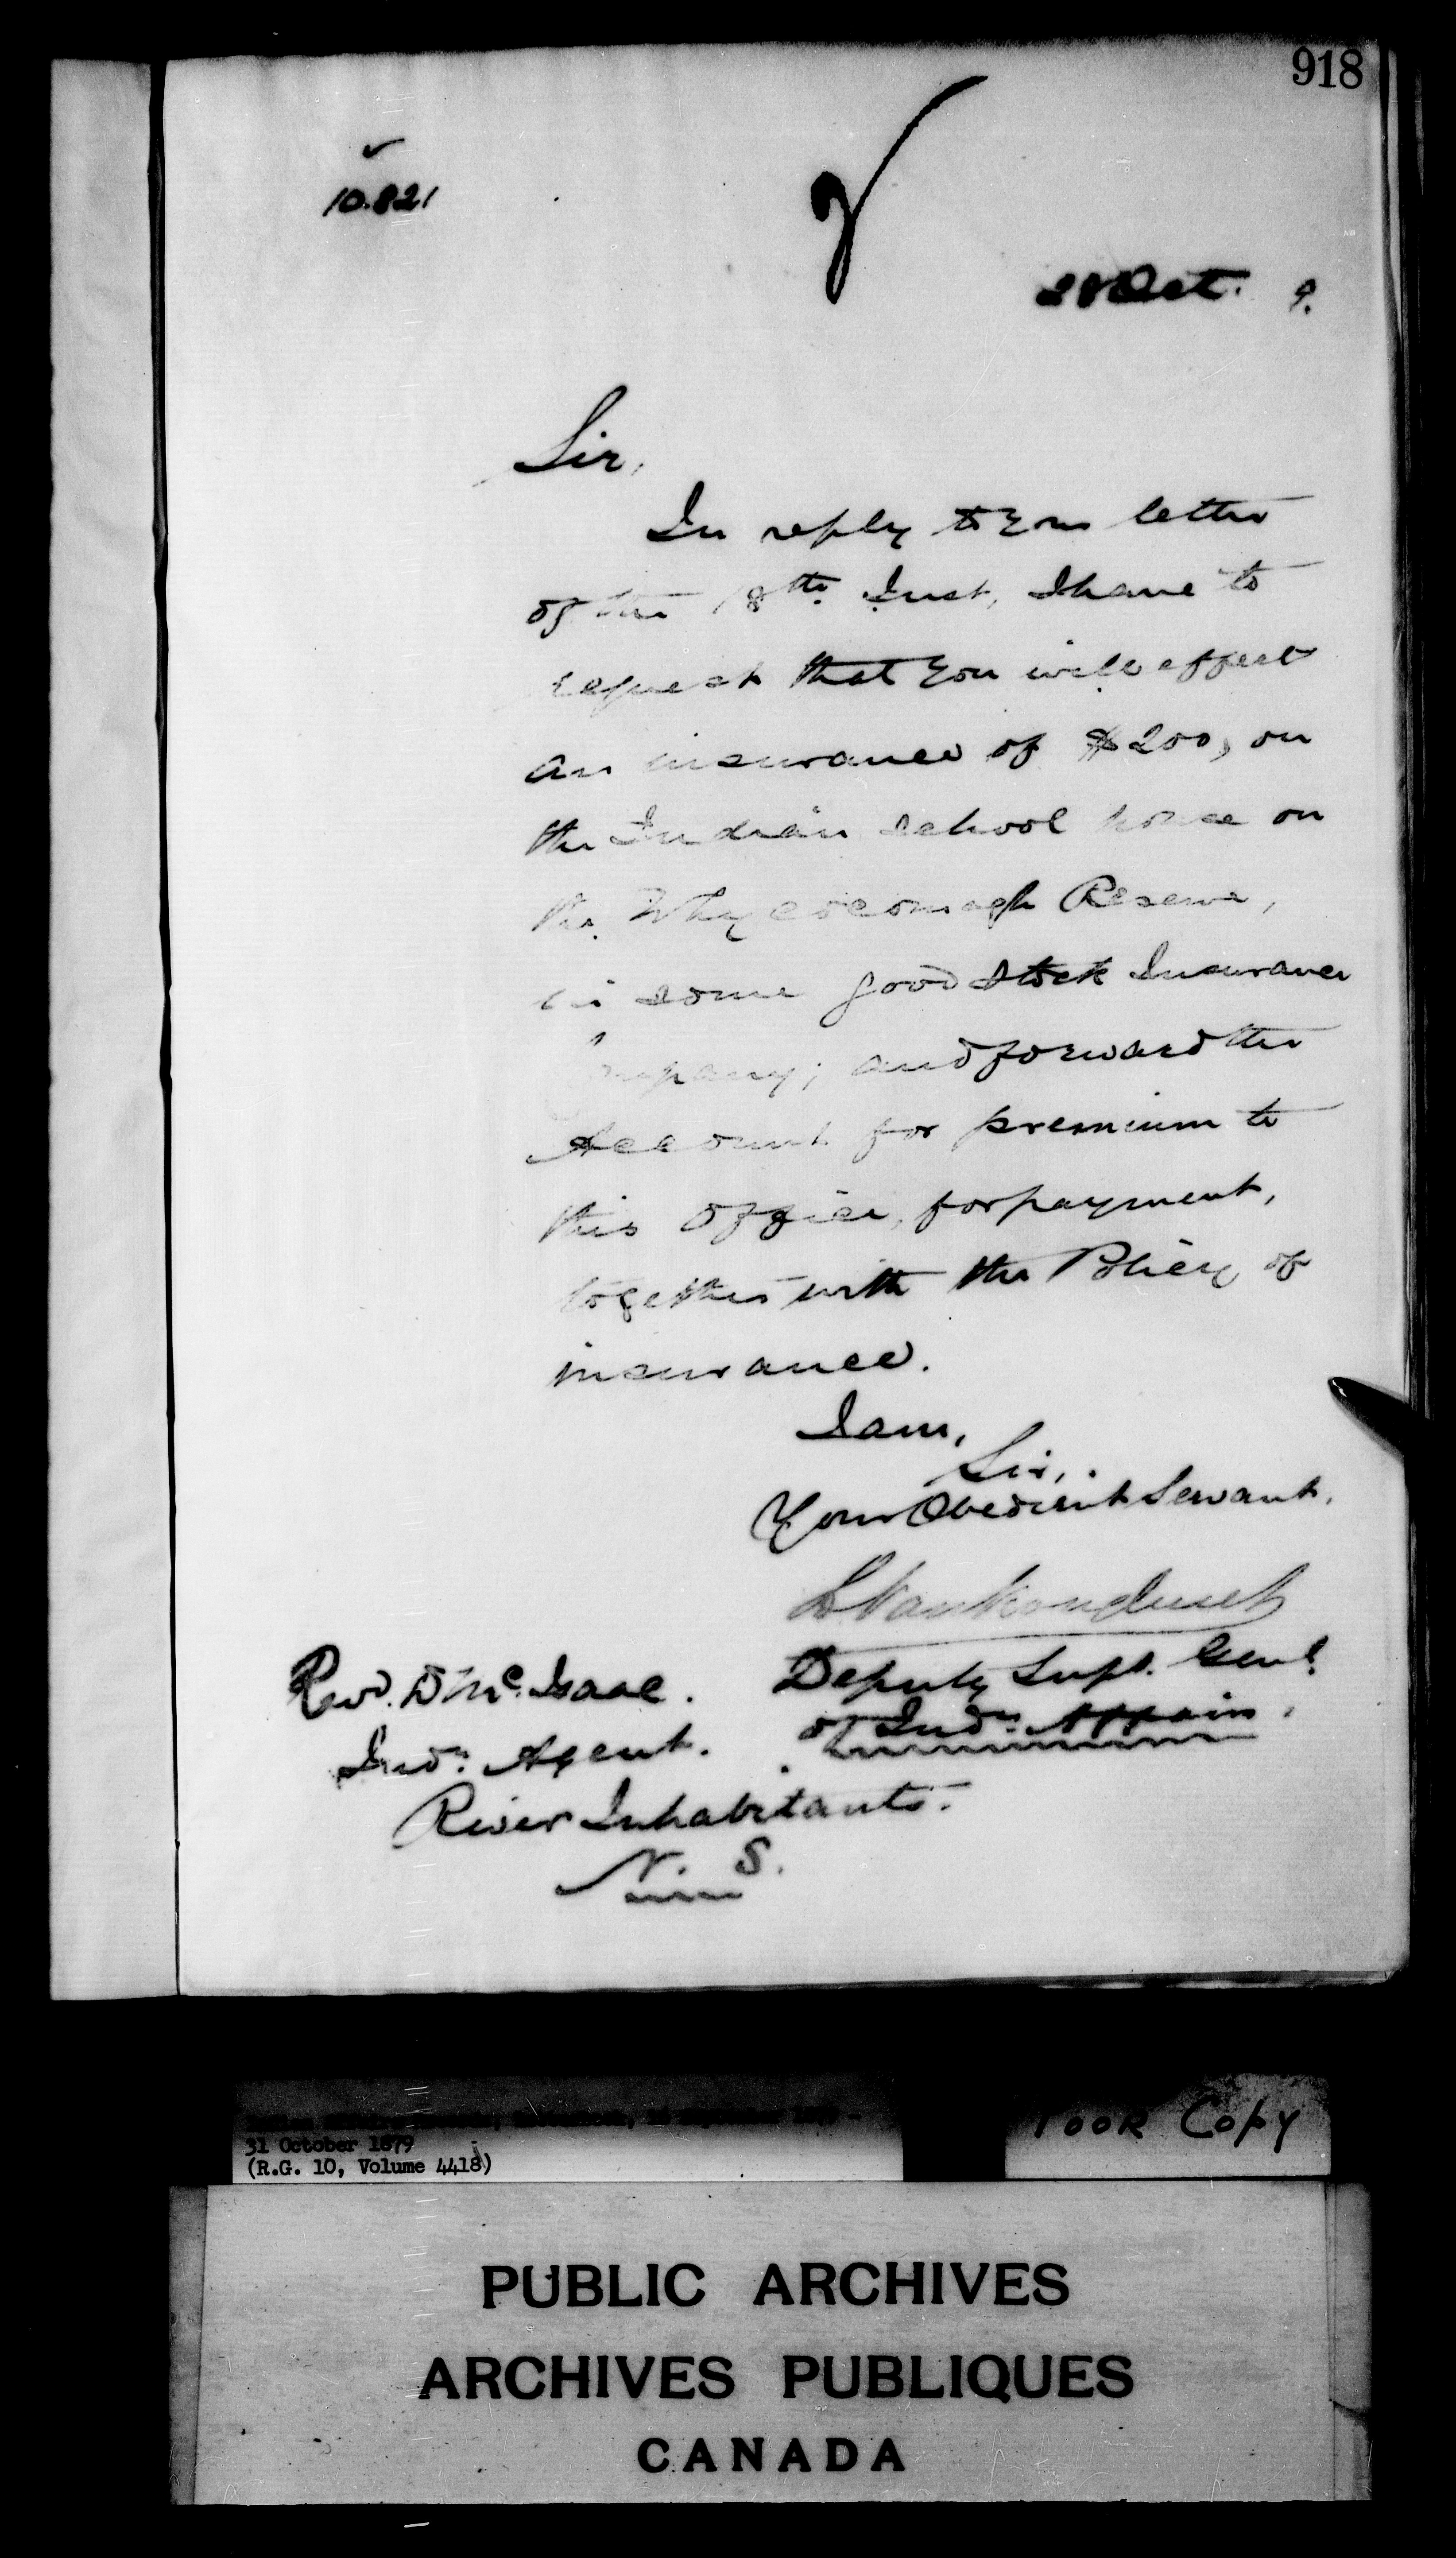 918
10.821
28 Oct. 9.
Sir,
In reply to your letter
of the 18th Inst, I have to
request that you will effect
an insurance of $200, on
the Indian school house on
the Whycocomagh Reserve,
in some good Stock Insurance
Company; and forward the
Account for premium to
this Office, for payment,
together with the Policy of
insurance.
I am,
Sir,
Your Obedient Servant,
L VanKoughnet
Deputy Supt. Genl.
of Indn. Affairs,
Revd. D McIsaac.
Indn. Agent.
River Inhabitants.
N. S.
31 October 1879
(R.G. 10, Volume 4418)
Poor Copy
PUBLIC ARCHIVES
ARCHIVES PUBLIQUES
CANADA